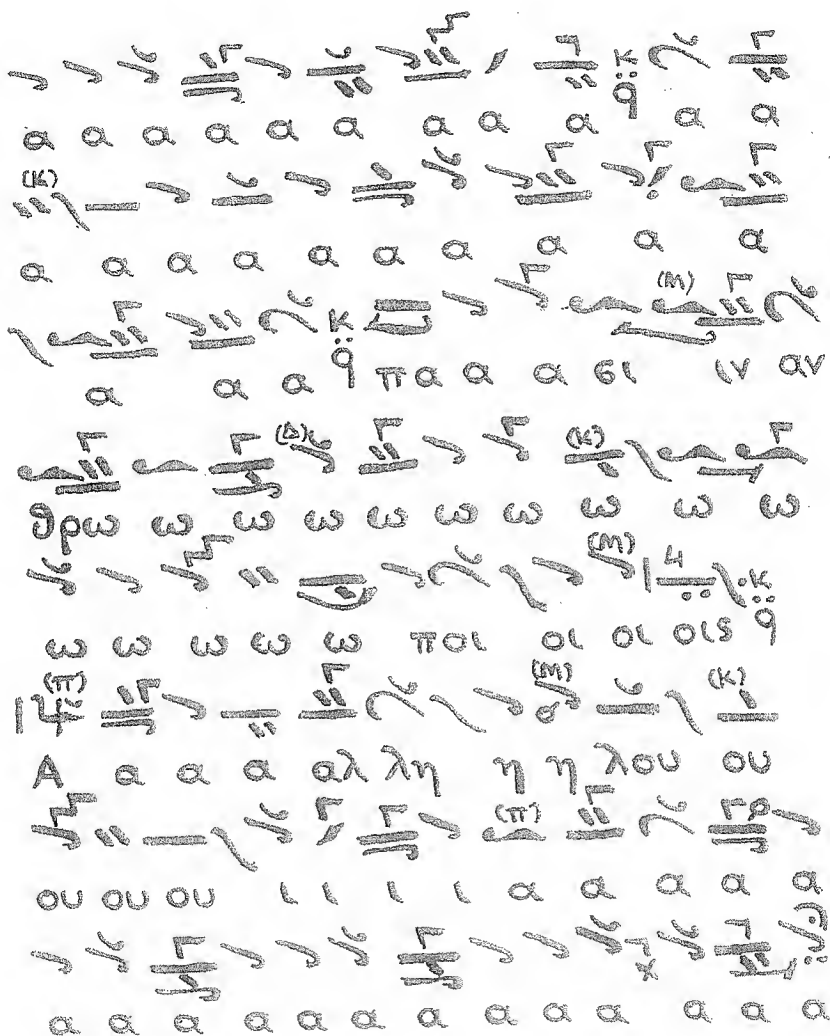 α α α α α α α α α α α
(κ)
α α α α α α α α α α
(Μ)
α α α πα α α σι ιν αν
(Δ) (κ)
θρω ω ω ω ω ω ω ω ω ω
(Μ)
ω ω ω ω ω ποι οι οι οις
(π) (Μ) (κ)
Α α α α αλ λη η η λου ου
(π)
ου ου ου ι ι ι ι α α α α α
α α α α α α α α α α α α α α